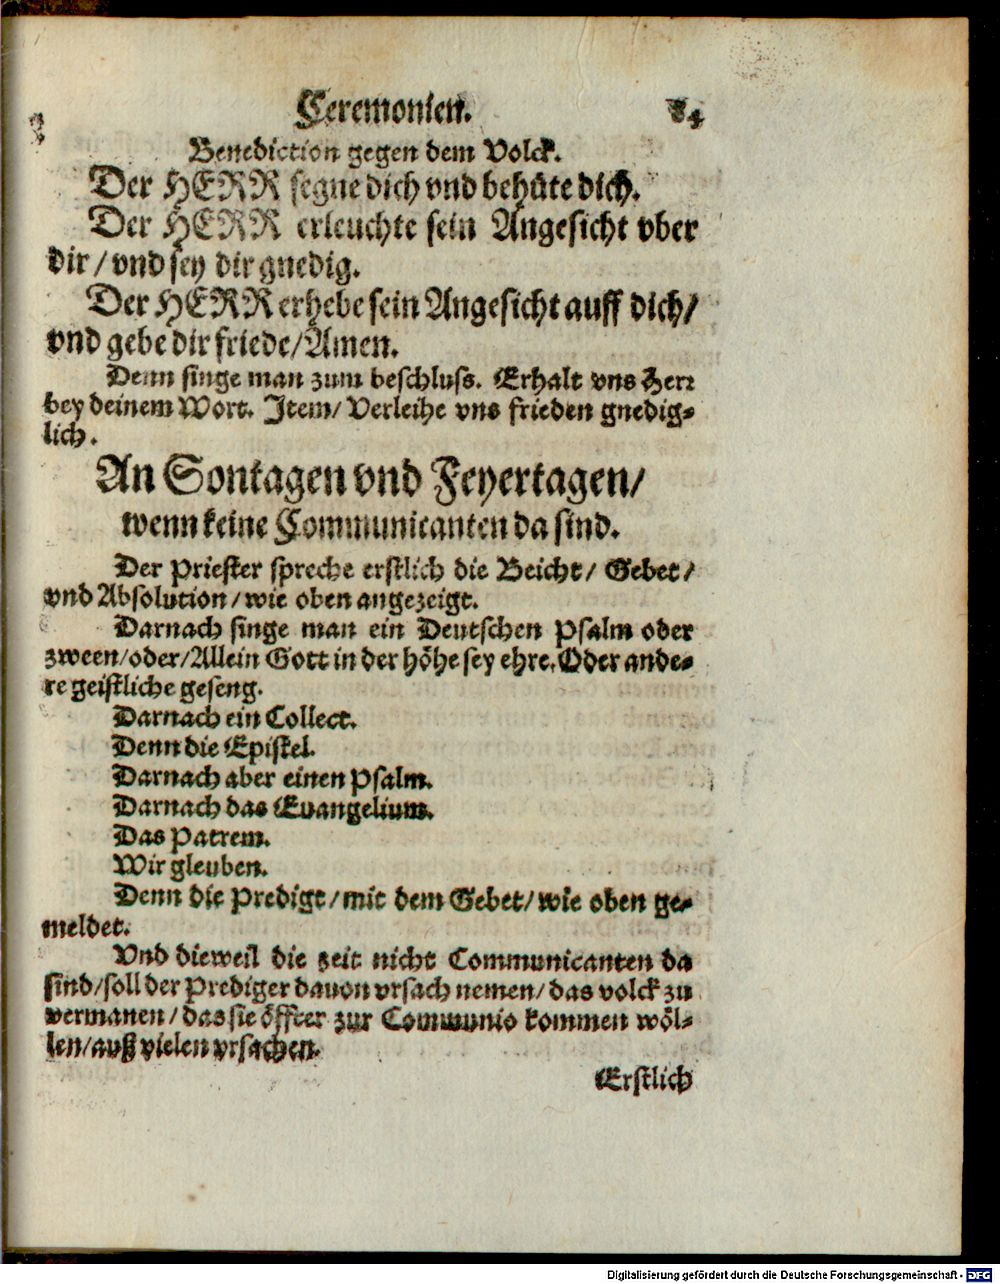 Ceremonien. 84
Benediction gegen dem Volck.
Der HERR segne dich vnd behüte dich.
Der HERR erleuchte sein Angesicht vber
dir/ vnd sey dir gnedig.
Der HERR erhebe sein Angesicht auff dich/
vnd gebe dir friede/ Amen.
Denn singe man zum beschluss. Erhalt vns Herr
bey deinem Wort. Item/ Verleihe vns frieden gnedig-
lich.
An Sontagen vnd Feyertagen/
wenn keine Communicanten da sind.
Der Priester spreche erstlich die Beicht/ Gebet/
vnd Absolution/ wie oben angezeigt.
Darnach singe man ein Deutschen Psalm oder
zween/ oder/ Allein Gott in der höhe sey ehre. Oder ande-
re geistliche geseng.
Darnach ein Collect.
Denn die Epistel.
Darnach aber einen Psalm.
Darnach das Euangelium.
Das Patrem.
Wir gleuben.
Denn die Predigt/ mit dem Gebet/ wie oben ge-
meldet.
Vnd dieweil die zeit nicht Communicanten da
sind/ soll der Prediger dauon vrsach nemen/ das volck zu
vermanen/ das sie öffter zur Communio kommen wöl-
len/ auß vielen vrsachen.
Erstlich
Digitalisierung gefördert durch die Deutsche Forschungsgemeinschaft - DFG